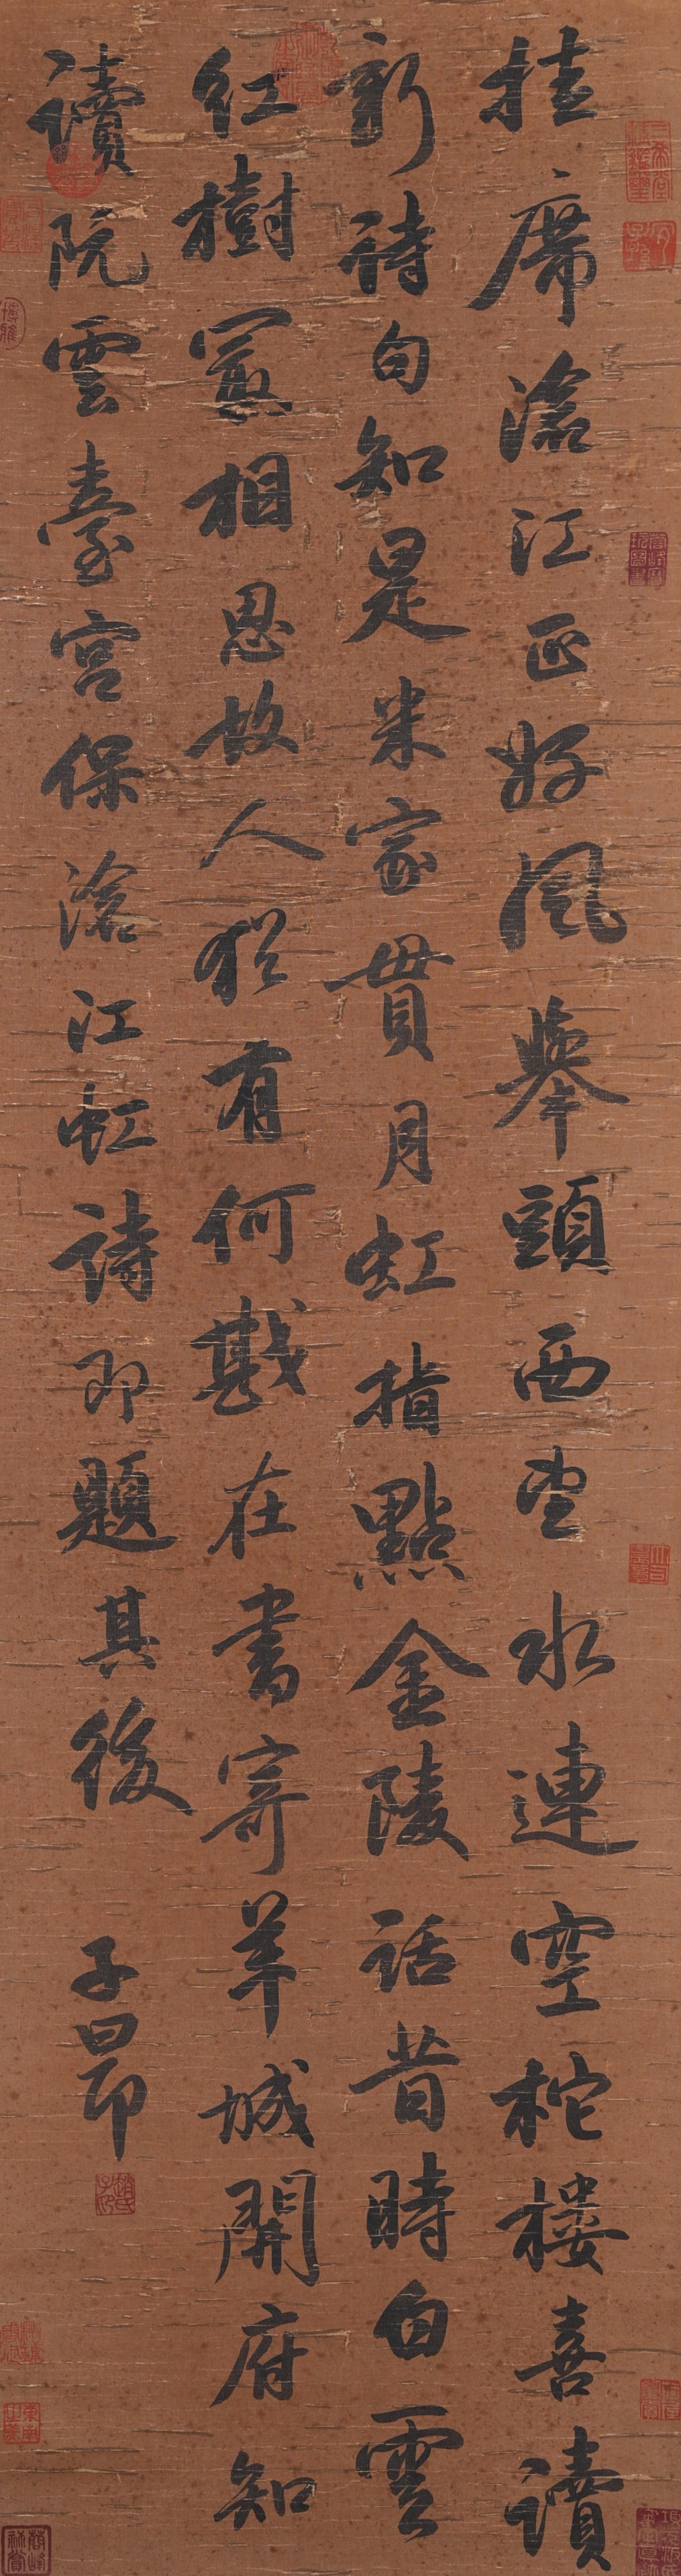 挂席滄江正好風舉頭西望水連空柁樓喜讀
新詩句知是米家貫月虹指點金陵話昔時白雲
紅樹最相思故人猶有何戡在書寄羊城開府知
讀阮雲臺宮保滄江虹詩即題其後 子昂